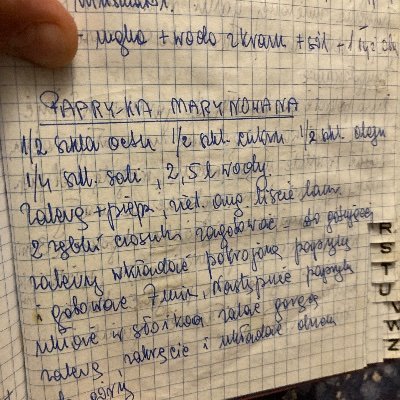 mąka + woda z kranu + sól + 1 łyż
PAPRYKA MARYNOWANA
1/2 szkla octu 1/2 szkl. cukru 1/2 szkl. oleju
1/4 szkl. soli, 2,5 l wody.
Zalewa + pieprz, ziel. ang liście laur.
2 ząbki czosnku zagotować - do gotującej
zalewy wkładać pokrojoną paprykę
i gotować 7 min, następnie paprykę
włożyć w słoiki zalać gorącą
zalewą zakręcić i układać dnem
do góry
R
S
T
U
V
W
Z